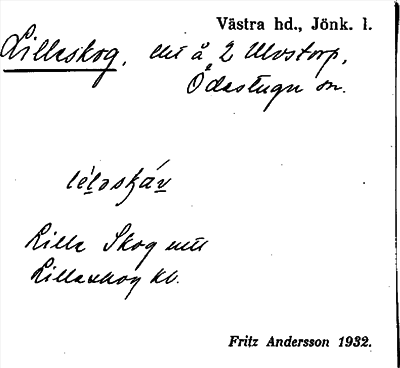 Västra hd., Jönk. l.
Lillaskog, å 2 Ulvstorp,
Ödestugu sn.
Lilla Skog
Lillaskog kb.
Fritz Andersson 1932.